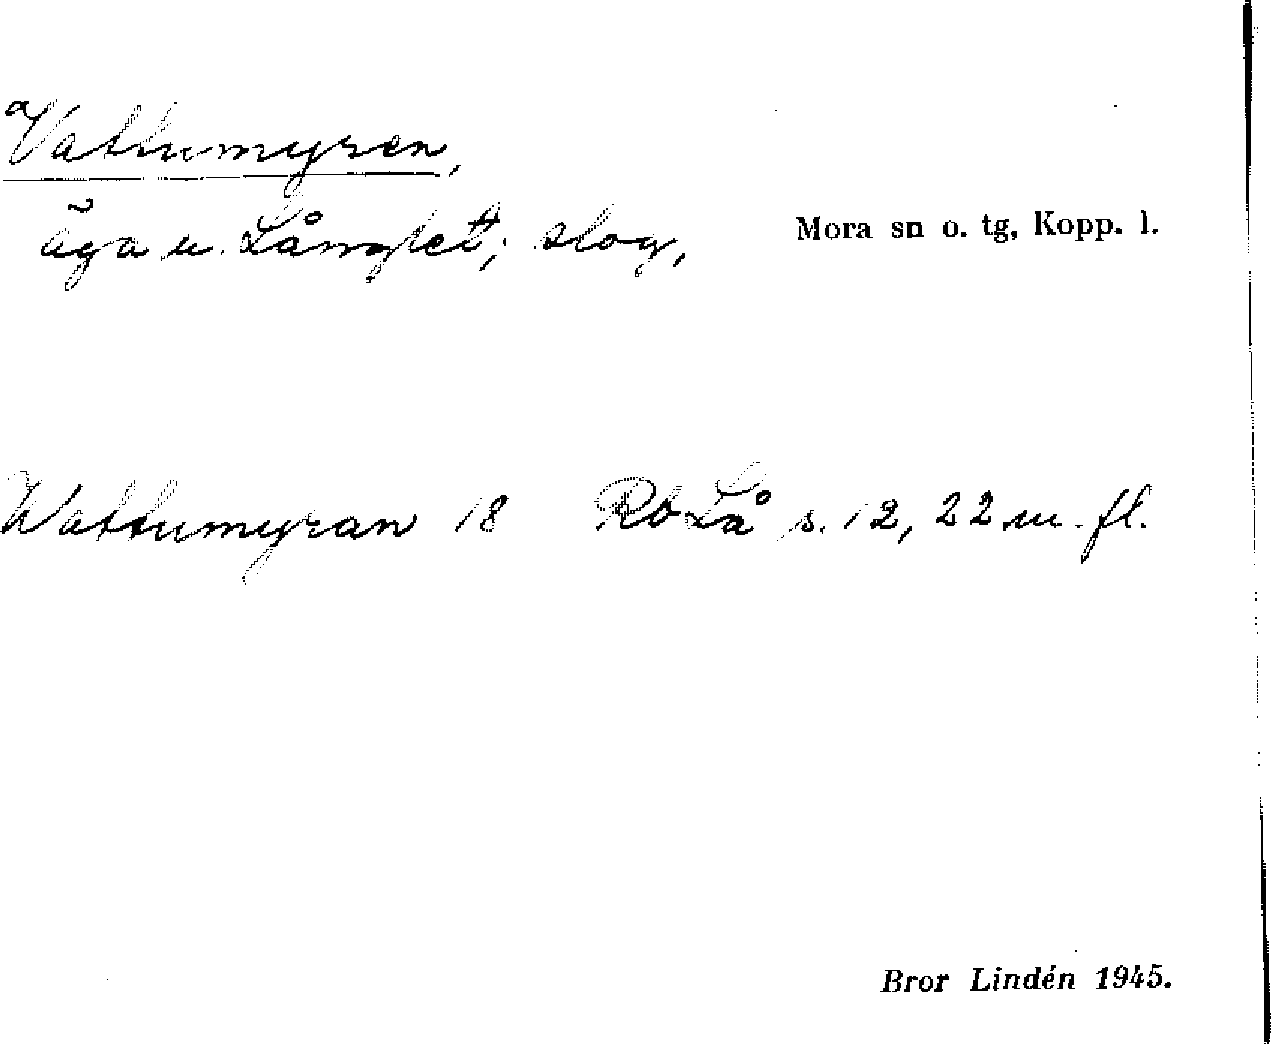 Vattumyren,
äga u. Långlet; slog,
Mora sn o. tg, Kopp. l.
Wattumyran 18 Rb Lå s. 12, 22 m. fl.
Bror Lindén 1945.